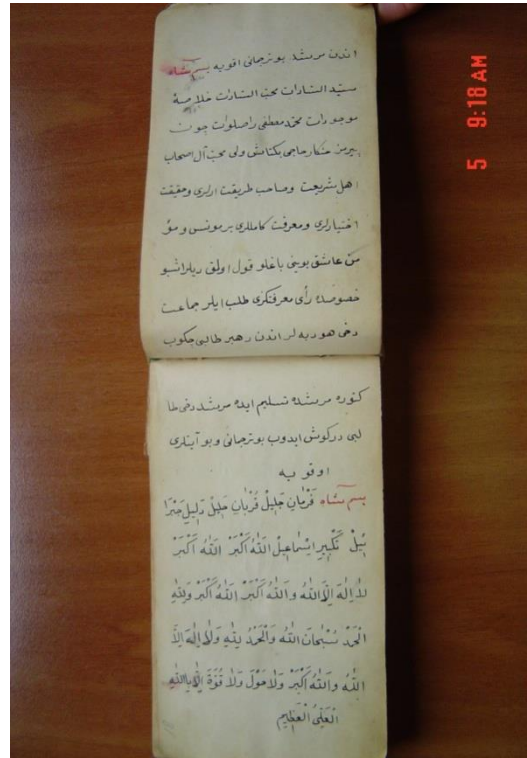 اندن مرشد بو ترجمانی اقویه بسم شاه
سید السادات محب السادات خلاصهٔ
موجودات محمد مصطفی را صلوات چون
پیرمز خنکار حاجی بکتاش ولی محب آل اصحاب
اهل شریعت وصاحب طریقت ارلری وحقیقت
اختیارلری ومعرفت کاملری بر مونس و مؤ
من عاشق بوینی باغلو قول اولق دیلر اشبو
خصوصده رأی معرفتکزی طلب ایلر جماعت
دخی هو دیه لر اندن رهبر طالبی چکوب
کتوره مرشده تسلیم ایده مرشد دخی طا
لبی درکوش ایدوب بو ترجمانی وبو آیتلری
اوقویه
بسم شاه فَرْمَانِ جَلِیلْ قُرْبَانِ خَلِیلْ دَلِیلِ جَبْرَا
ئِیلْ تَکْبِیرِ اِسْمَاعِیلْ اَللهُ اَکْبَرْ اَللهُ اَکْبَرْ
لَا اِلٰهَ اِلَّا اللهُ وَاللهُ اَکْبَرْ اَللهُ اَکْبَرْ وَلِلّٰهِ
الْحَمْدْ سُبْحَانَ اللهِ وَالْحَمْدُ لِلّٰهِ وَلَا اِلٰهَ اِلَّا
اللهُ وَاللهُ اَکْبَرْ وَلَا حَوْلَ وَلَا قُوَّةَ اِلَّا بِاللهِ
الْعَلِیِّ الْعَظِیمْ
5 9:18 AM